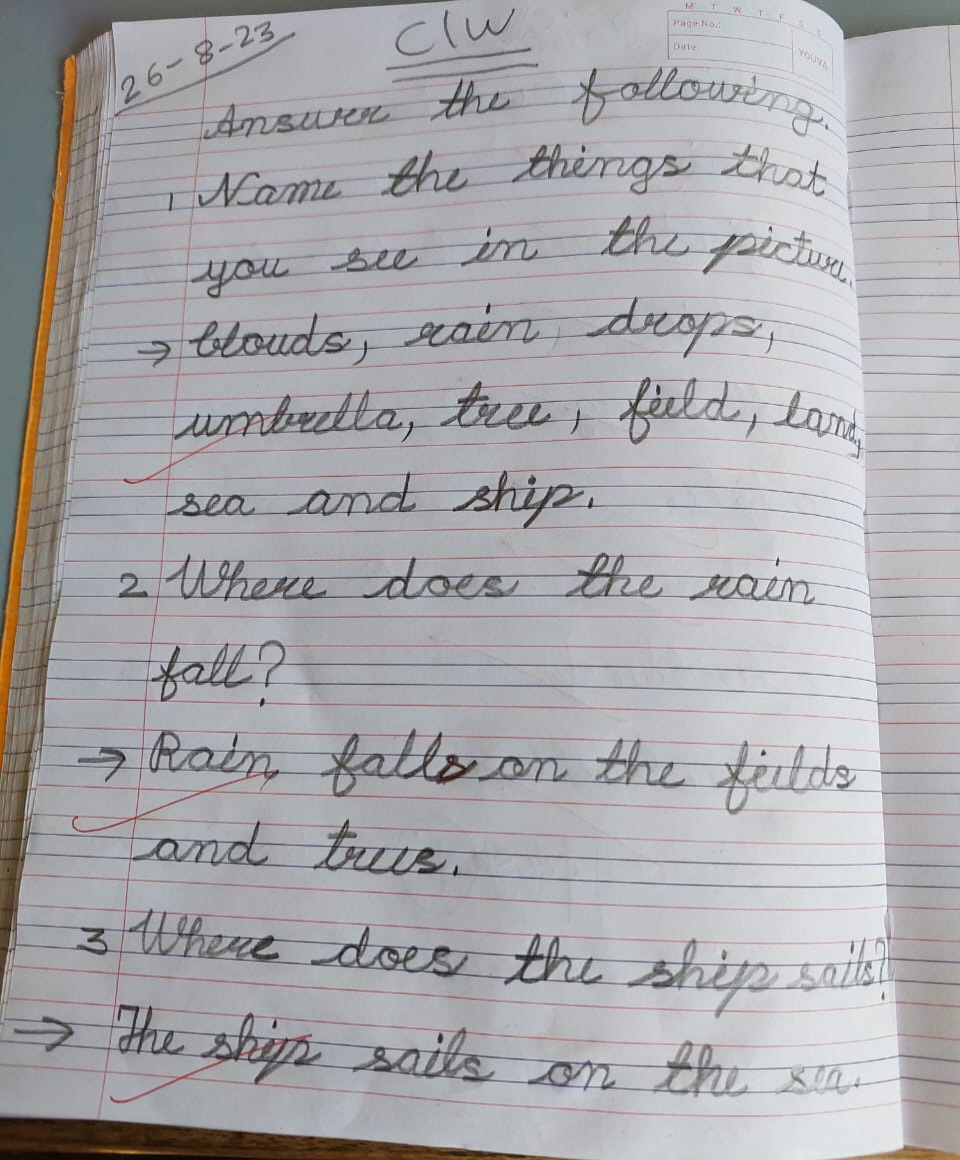 M T W T F S S
Page No.:
Date:
YOUVA
26-8-23
C/W
Answer the following.
1 Name the things that
you see in the picture.
→ Clouds, rain drops,
umbrella, tree, field, land,
sea and ship.
2 Where does the rain
fall?
→ Rain falls on the feilds
and trees.
3 Where does the ship sails?
→ The ship sails on the sea.